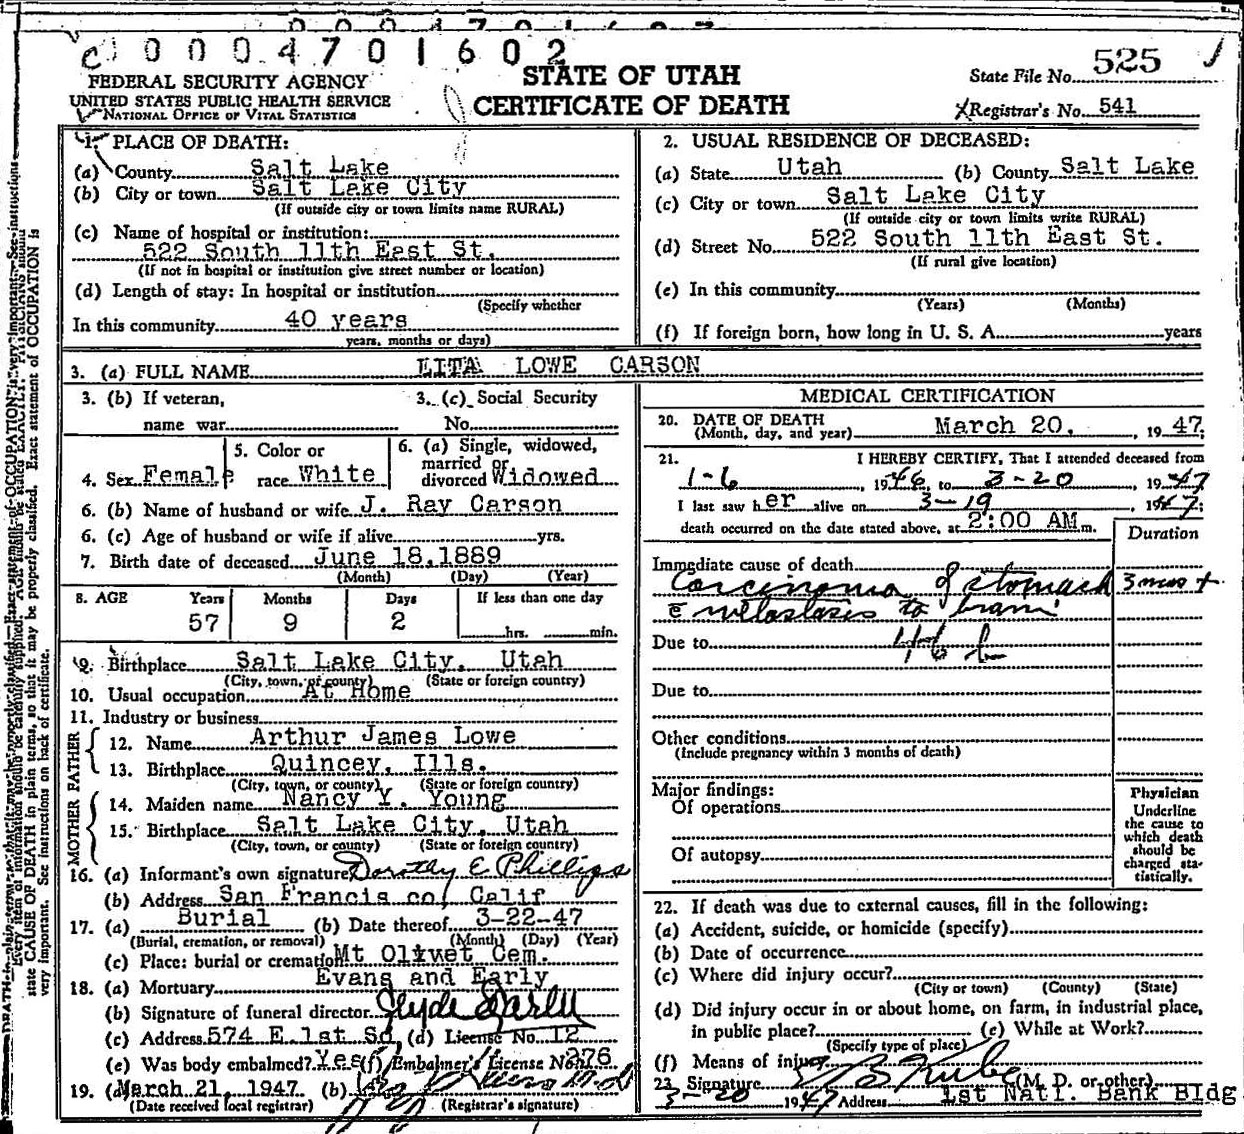 0004701602
FEDERAL SECURITY AGENCY
UNITED STATES PUBLIC HEALTH SERVICE
NATIONAL OFFICE OF VITAL STATISTICS
STATE OF UTAH
CERTIFICATE OF DEATH
State File No. 525
Registrar's No. 541
1. PLACE OF DEATH:
(a) County Salt Lake
(b) City or town Salt Lake City
(If outside city or town limits name RURAL)
(c) Name of hospital or institution:
522 South 11th East St.
(If not in hospital or institution give street number or location)
(d) Length of stay: In hospital or institution
(Specify whether
In this community 40 years
years, months or days)
2. USUAL RESIDENCE OF DECEASED:
(a) State Utah (b) County Salt Lake
(c) City or town Salt Lake City
(If outside city or town limits write RURAL)
(d) Street No. 522 South 11th East St.
(If rural give location)
(e) In this community
(Years) (Months)
(f) If foreign born, how long in U. S. A. years
3. (a) FULL NAME LITA LOWE CARSON
3. (b) If veteran,
name war
3. (c) Social Security
No.
4. Sex Female
5. Color or
race White
6. (a) Single, widowed,
married or
divorced Widowed
6. (b) Name of husband or wife J. Ray Carson
6. (c) Age of husband or wife if alive yrs.
7. Birth date of deceased June 18,1889
(Month) (Day) (Year)
8. AGE Years Months Days If less than one day
57 9 2 hrs. min.
9. Birthplace Salt Lake City, Utah
(City, town, or county) (State or foreign country)
10. Usual occupation At Home
11. Industry or business
FATHER
12. Name Arthur James Lowe
13. Birthplace Quincey, Ills.
(City, town, or county) (State or foreign country)
MOTHER
14. Maiden name Nancy Y. Young
15. Birthplace Salt Lake City, Utah
(City, town, or county) (State or foreign country)
16. (a) Informant's own signature Dorothy E Phillips
(b) Address San Francis co, Calif
17. (a) Burial (b) Date thereof 3-22-47
(Burial, cremation, or removal) (Month) (Day) (Year)
(c) Place: burial or cremation Mt Olivet Cem.
18. (a) Mortuary Evans and Early
(b) Signature of funeral director Clyde Early
(c) Address 574 E.1st So, (d) License No. 12
(e) Was body embalmed? Yes (f) Embalmer's License No. 276
19. (a) March 21, 1947 (b)
(Date received local registrar) (Registrar's signature)
MEDICAL CERTIFICATION
20. DATE OF DEATH
(Month, day, and year) March 20, , 19 47;
21. I HEREBY CERTIFY, That I attended deceased from
1-6, 1946, to 3-20, 1947
I last saw h er alive on 3-19, 1947;
death occurred on the date stated above, at 2:00 AM m.
Duration
Immediate cause of death
Carcinoma of stomach 3 mos +
c metastases to brain
Due to 46 b
Due to
Other conditions
(Include pregnancy within 3 months of death)
Major findings:
Of operations
Of autopsy
Physician
Underline
the cause to
which death
should be
charged sta-
tistically.
22. If death was due to external causes, fill in the following:
(a) Accident, suicide, or homicide (specify)
(b) Date of occurrence
(c) Where did injury occur?
(City or town) (County) (State)
(d) Did injury occur in or about home, on farm, in industrial place,
in public place? (e) While at Work?
(Specify type of place)
(f) Means of injury
23. Signature (M. D. or other)
3-20 1947 Address 1st Nat'l. Bank Bldg